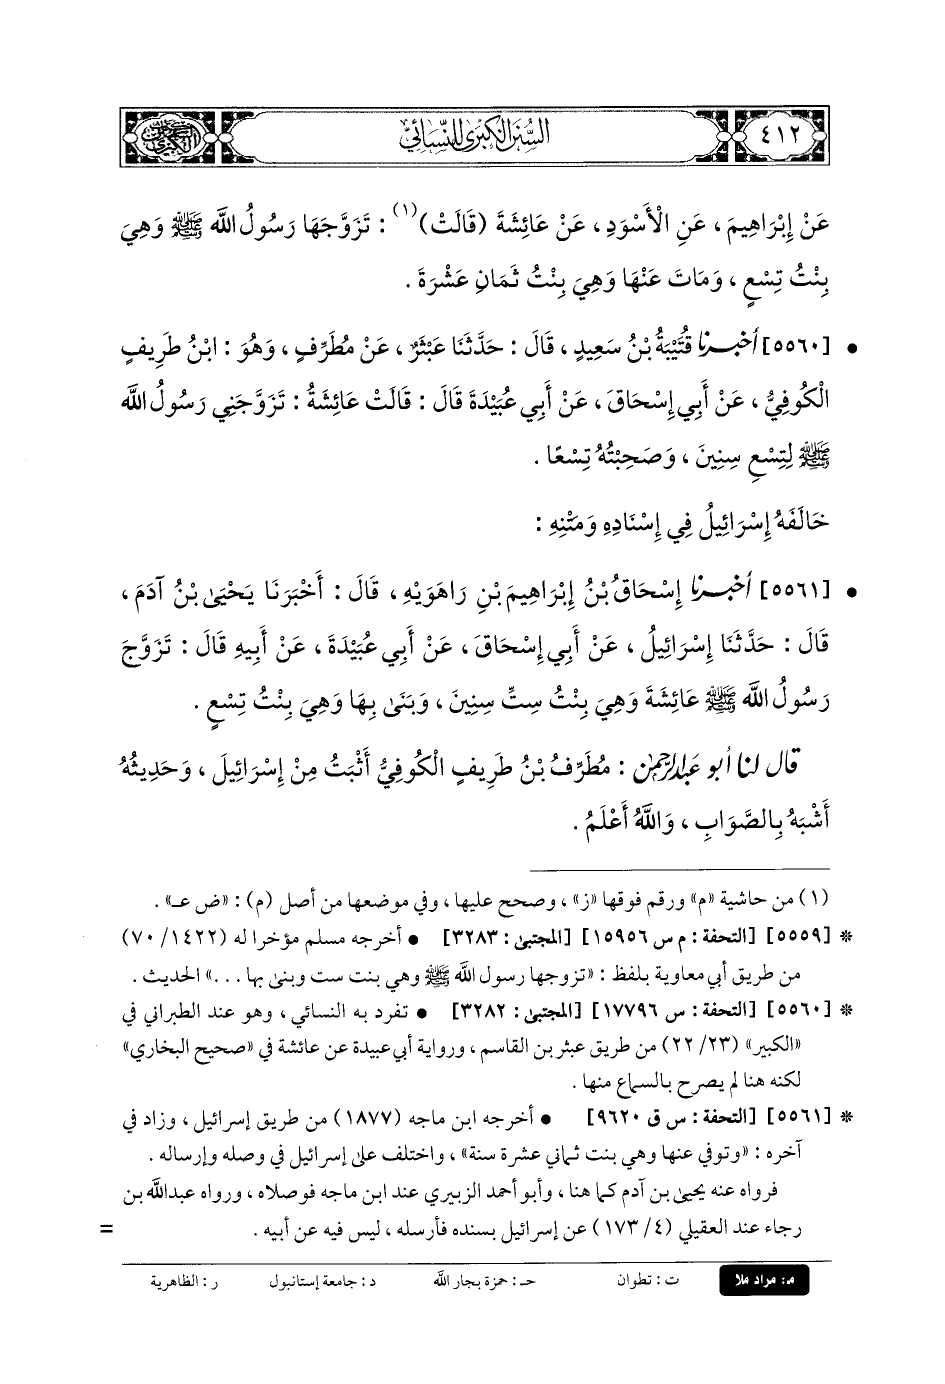 ٤١٢
السُّنَنُ الكِبْرَى لِلنَّسَائِيِّ
عَنْ إِبْرَاهِيمَ ، عَنِ الْأَسْوَدِ ، عَنْ عَائِشَةَ (قَالَتْ)(١) : تَزَوَّجَهَا رَسُولُ اللَّه ﷺ وَهِيَ
بِنْتُ تِسْعٍ ، وَمَاتَ عَنْهَا وَهِيَ بِنْتُ ثَمَانِ عَشْرَةَ .
• [٥٥٦٠] أخبرنا قُتَيْبَةُ بْنُ سَعِيدٍ ، قَالَ : حَدَّثَنَا عَبْثَرٌ ، عَنْ مُطَرِّفٍ ، وَهُوَ : ابْنُ طَرِيفٍ
الْكُوفِيُّ ، عَنْ أَبِي إِسْحَاقَ ، عَنْ أَبِي عُبَيْدَةَ قَالَ : قَالَتْ عَائِشَةُ : تَزَوَّجَنِي رَسُولُ اللَّه
ﷺ لِتِسْعِ سِنِينَ ، وَصَحِبْتُهُ تِسْعًا .
خَالَفَهُ إِسْرَائِيلُ فِي إِسْنَادِهِ وَمَتْنِهِ :
• [٥٥٦١] أخبرنا إِسْحَاقُ بْنُ إِبْرَاهِيمَ بْنِ رَاهَوَيْهِ ، قَالَ : أَخْبَرَنَا يَحْيَى بْنُ آدَمَ ،
قَالَ : حَدَّثَنَا إِسْرَائِيلُ ، عَنْ أَبِي إِسْحَاقَ ، عَنْ أَبِي عُبَيْدَةَ ، عَنْ أَبِيهِ قَالَ : تَزَوَّجَ
رَسُولُ اللَّه ﷺ عَائِشَةَ وَهِيَ بِنْتُ سِتِّ سِنِينَ ، وَبَنَى بِهَا وَهِيَ بِنْتُ تِسْعٍ .
قال لنا أبو عبد الرحمن : مُطَرِّفُ بْنُ طَرِيفٍ الْكُوفِيُّ أَثْبَتُ مِنْ إِسْرَائِيلَ ، وَحَدِيثُهُ
أَشْبَهُ بِالصَّوَابِ ، وَاللَّهُ أَعْلَمُ .
(١) من حاشية «م» ورقم فوقها «ز» ، وصحح عليها ، وفي موضعها من أصل (م) : «ض عـ» .
* [٥٥٥٩] [التحفة : م س ١٥٩٥٦] [المجتبى : ٣٢٨٣] • أخرجه مسلم مؤخرا له (١٤٢٢/ ٧٠)
من طريق أبي معاوية بلفظ : «تزوجها رسول اللَّه ﷺ وهي بنت ست وبنى بها ...» الحديث .
* [٥٥٦٠] [التحفة : س ١٧٧٩٦] [المجتبى : ٣٢٨٢] • تفرد به النسائي ، وهو عند الطبراني في
«الكبير» (٢٣/ ٢٢) من طريق عبثر بن القاسم ، ورواية أبي عبيدة عن عائشة في «صحيح البخاري»
لكنه هنا لم يصرح بالسماع منها .
* [٥٥٦١] [التحفة : س ق ٩٦٢٠] • أخرجه ابن ماجه (١٨٧٧) من طريق إسرائيل ، وزاد في
آخره : «وتوفي عنها وهي بنت ثماني عشرة سنة» ، واختلف على إسرائيل في وصله وإرساله .
فرواه عنه يحيى بن آدم كما هنا ، وأبو أحمد الزبيري عند ابن ماجه فوصلاه ، ورواه عبداللَّه بن
رجاء عند العقيلي (٤/ ١٧٣) عن إسرائيل بسنده فأرسله ، ليس فيه عن أبيه .
=
م: مراد ملا ت : تطوان حـ : حمزة بجار اللَّه د : جامعة إستانبول ر : الظاهرية